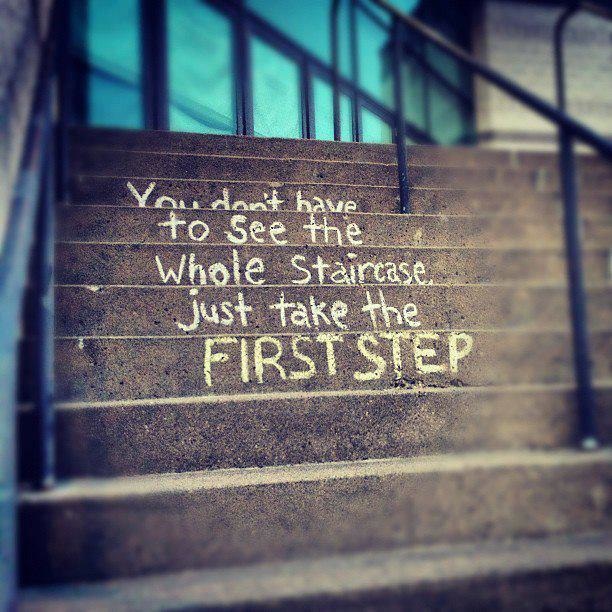 You don't have
to See the
Whole Staircase,
just take the
FIRST STEP